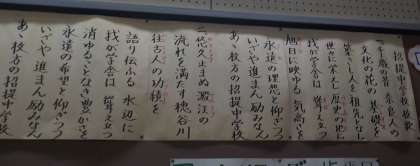 招提中学校校歌
一、千歳の昔 奈良人の
文化の花の 其礎を
築きし人を 祖先とし
世々に栄えし 歴史の地に
我が学舎は 聳え立つ
旭日に映ゆる 気高さを
永遠の理想と 仰ぎつつ
いざや進まん 励みなん
あゝ枚方の招提中学校
二、悠久止まぬ 澱江の
流れを満たす 穂谷川
往古人の 功績を
語り伝ふる 水辺に
我が学舎は 聳え立つ
消ゆることなき 豊かさを
永遠の希望と 仰ぎつつ
いざや進まん 励みなん
あゝ枚方の招提中学校